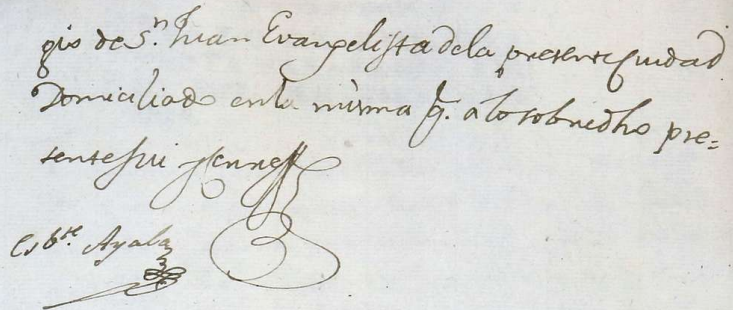 gio de Sn. Juan Evangelista dela presente Ciudad
Domiciliado en la misma q. a lo sobredho pre=
sente fui
Ayala